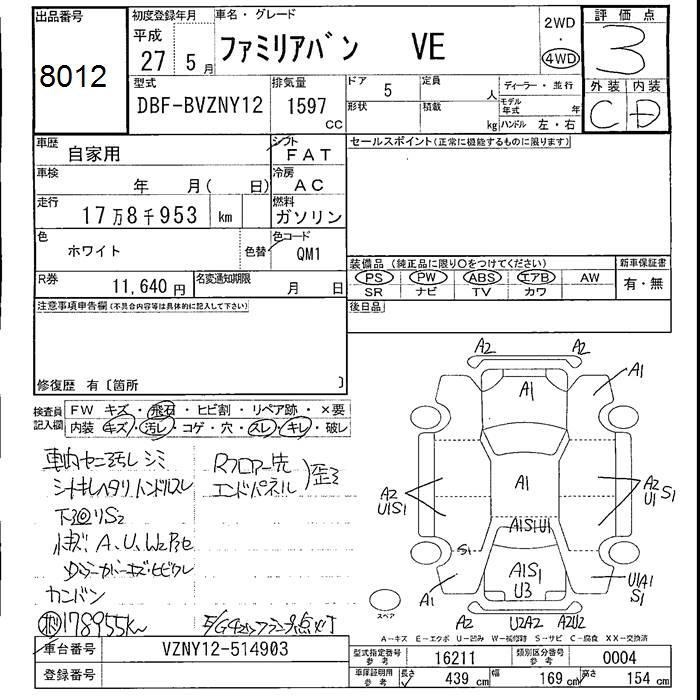 出品番号
8012
初度登録年月
平成
27 5月
車名・グレード
ファミリアバン VE
2WD
・
4WD
評価点
3
外装 内装
C D
型式
DBF-BVZNY12
排気量
1597
CC
ドア 5
定員 人
形状
積載 kg
ディーラー・並行
モデル年式 年
ハンドル 左・右
車歴
自家用
シフト
FAT
セールスポイント(正常に機能するものに限ります)
車検
年 月( 日)
冷房
AC
走行
17万8千953 km
燃料
ガソリン
色
ホワイト
色替
色コード
QM1
R券
11,640円
名変通知期限
月 日
装備品(純正品に限り○をつけてください)
PS PW ABS エアB AW
SR ナビ TV カワ
新車保証書
有・無
注意事項申告欄(不具合内容等は具体的に記入して下さい)
後日品
修復歴 有〔箇所 〕
検査員記入欄
FW キズ・飛石・ヒビ割・リペア跡・×要
内装 キズ・汚レ・コゲ・穴・スレ・キレ・破レ
車内ヤニ汚レ シミ
シートキレヘタリ ハンドルスレ
下廻りS2
小キズ A、U、W2 P色
カンバン
178955km
Rフロアー先
エンドパネル
歪ミ
A2 A2
A1 A1
A2
U1S1
A1
A2
U1 S1
A1S1U1
S1
A1S1
U3
A1
U1A1
S1
A2 U2A2 A2U2
スペア
A-キズ E-エクボ U-凹み W-補修跡 S-サビ C-腐食 XX-交換済
車台番号
VZNY12-514903
登録番号
型式指定番号
参考
16211
類別区分番号
参考
0004
車庫証明用
参考
長さ 439 cm
幅 169 cm
高さ 154 cm